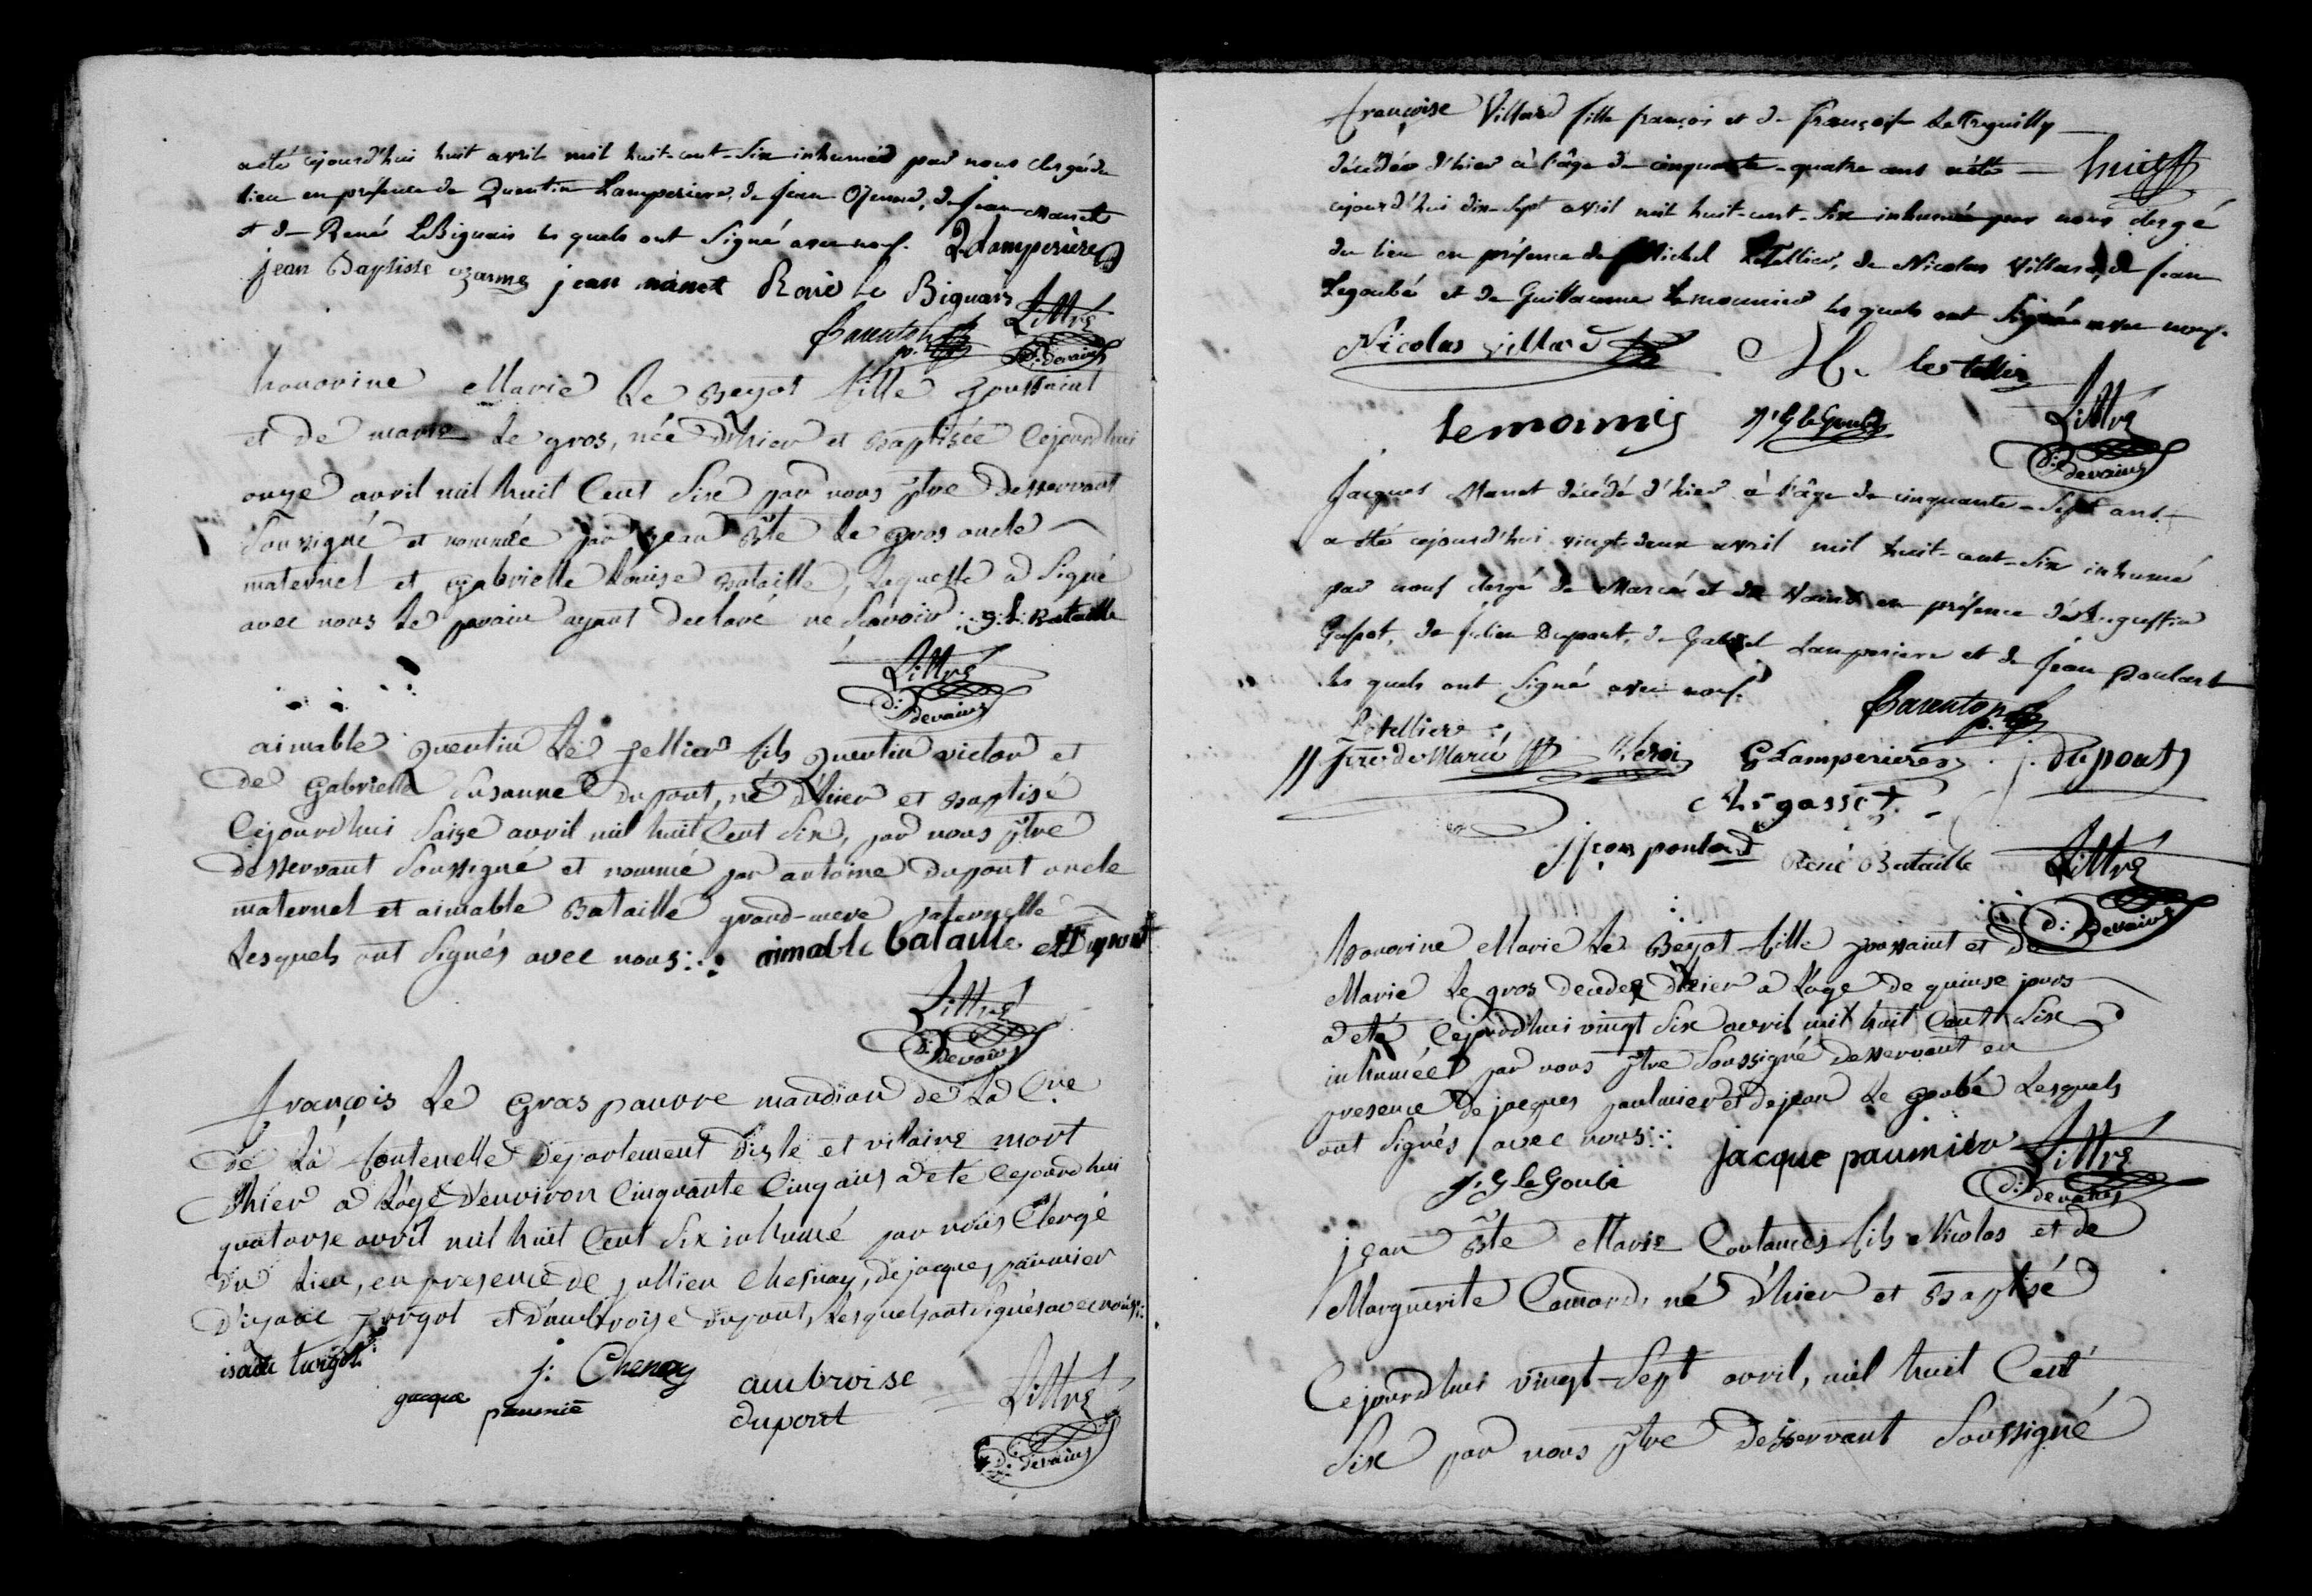 a été cejourd'hui huit avril mil huit-cent-six inhumée par nous clergé du
lieu en présence de Quentin Lamperiere, de Jean Ozenne, de Jean Manet
et de René LeBiguais les quels ont signé avec nous. Q Lamperiere
jean Baptiste jean manet René le Biguais
Littré
d: devains
honorine Marie Le Beyot fille Toussaint
et de marie Le gros, née d'hier et Baptisée Cejourdhui
onze avril mil huit Cent Six par nous ptre Desservant
Soussigné et nommée par jean Bte Le gros oncle
maternel et gabrielle Louise Bataille, Laquelle a Signé
avec nous Le parain ayant declaré ne Scavoir :. g: L: Bataille
Littré
d: devains
aimable Quentin Le Tellier fils Quentin victor et
de Gabrielle Susanne Dupont, né d'hier et Baptisé
Cejourdhui Saize avril mil huit Cent Six, par nous ptre
desservant Soussigné et nommé par antoine Dupont oncle
maternel et aimable Bataille grand-mere paternelle
Lesquels ont Signés avec nous :. aimable bataille Dupont
Littré
d: devains
françois Le Gras pauvre mandian de La Cne
de La fontenelle Departement Disle et vilaine mort
d'hier a L'age d'environ Cinquante Cinq ans a été Cejourdhui
quatorse avril mil huit Cent Six inhumé par nous Clergé
du Lieu, en presence de jullien Chesnay, de jacques paumier
D'isaac Turgot et d'ambroise Dupont, Lesquels ont Signés avec nous :.
isaac turgot j: Chenay ambroise Littré
jacque paumié dupont
d: devains
françoise Villard fille françois et de françoise LeTreguilly
décédée d'hier à l'âge de cinquante-quatre ans a été huit
cejourd'hui dix-sept avril mil huit-cent-six inhumée par nous clergé
du lieu en présence de Michel LeTellier, de Nicolas Villard, de Jean
Legoubé et de Guillaume Lemounier les quels ont signé avec nous.
Nicolas villard M. le tellier
lemounié J G le Goubé Littré
d: devains
Jacques Manet décédé d'hier à l'âge de cinquante-sept ans
a été cejourd'hui vingt-deux avril mil huit-cent-six inhumé
par nous clergé de Marcé et de Vains en présence d'Augustin
Gosset, de Julien Dupont, de Gabriel Lamperiere et de Jean Poulard
les quels ont signé avec nous.
Letellier
de Marcé G Lamperiere j: dupont
gosset
jean poulard René Bataille Littré
d: Devains
honorine Marie Le Beyot fille Toussaint et de
Marie Le gros decedee d'hier a L'age de quinse jours
a été Cejourdhui vingt Six avril mil huit Cent Six
inhumée par nous ptre Soussigné desservant en
presence de jacques paumier et de jean Le goubé Lesquels
ont Signés avec nous :. jacque paumier Littré
J. G le Goubé d: devains
jean Bte Marie Coutances fils Nicolas et de
Marguerite Camard, né d'hier et Baptisé
Cejourdhui vingt-Sept avril, mil huit Cent
Six par nous ptre Desservant Soussigné